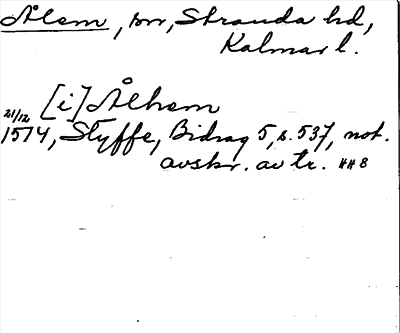 Ålem, sn, Stranda hd,
Kalmar l.
[i] Ålhem
21/12
1514, Styffe, Bidrag 5, s. 537, not.
avskr. av tr. HHB